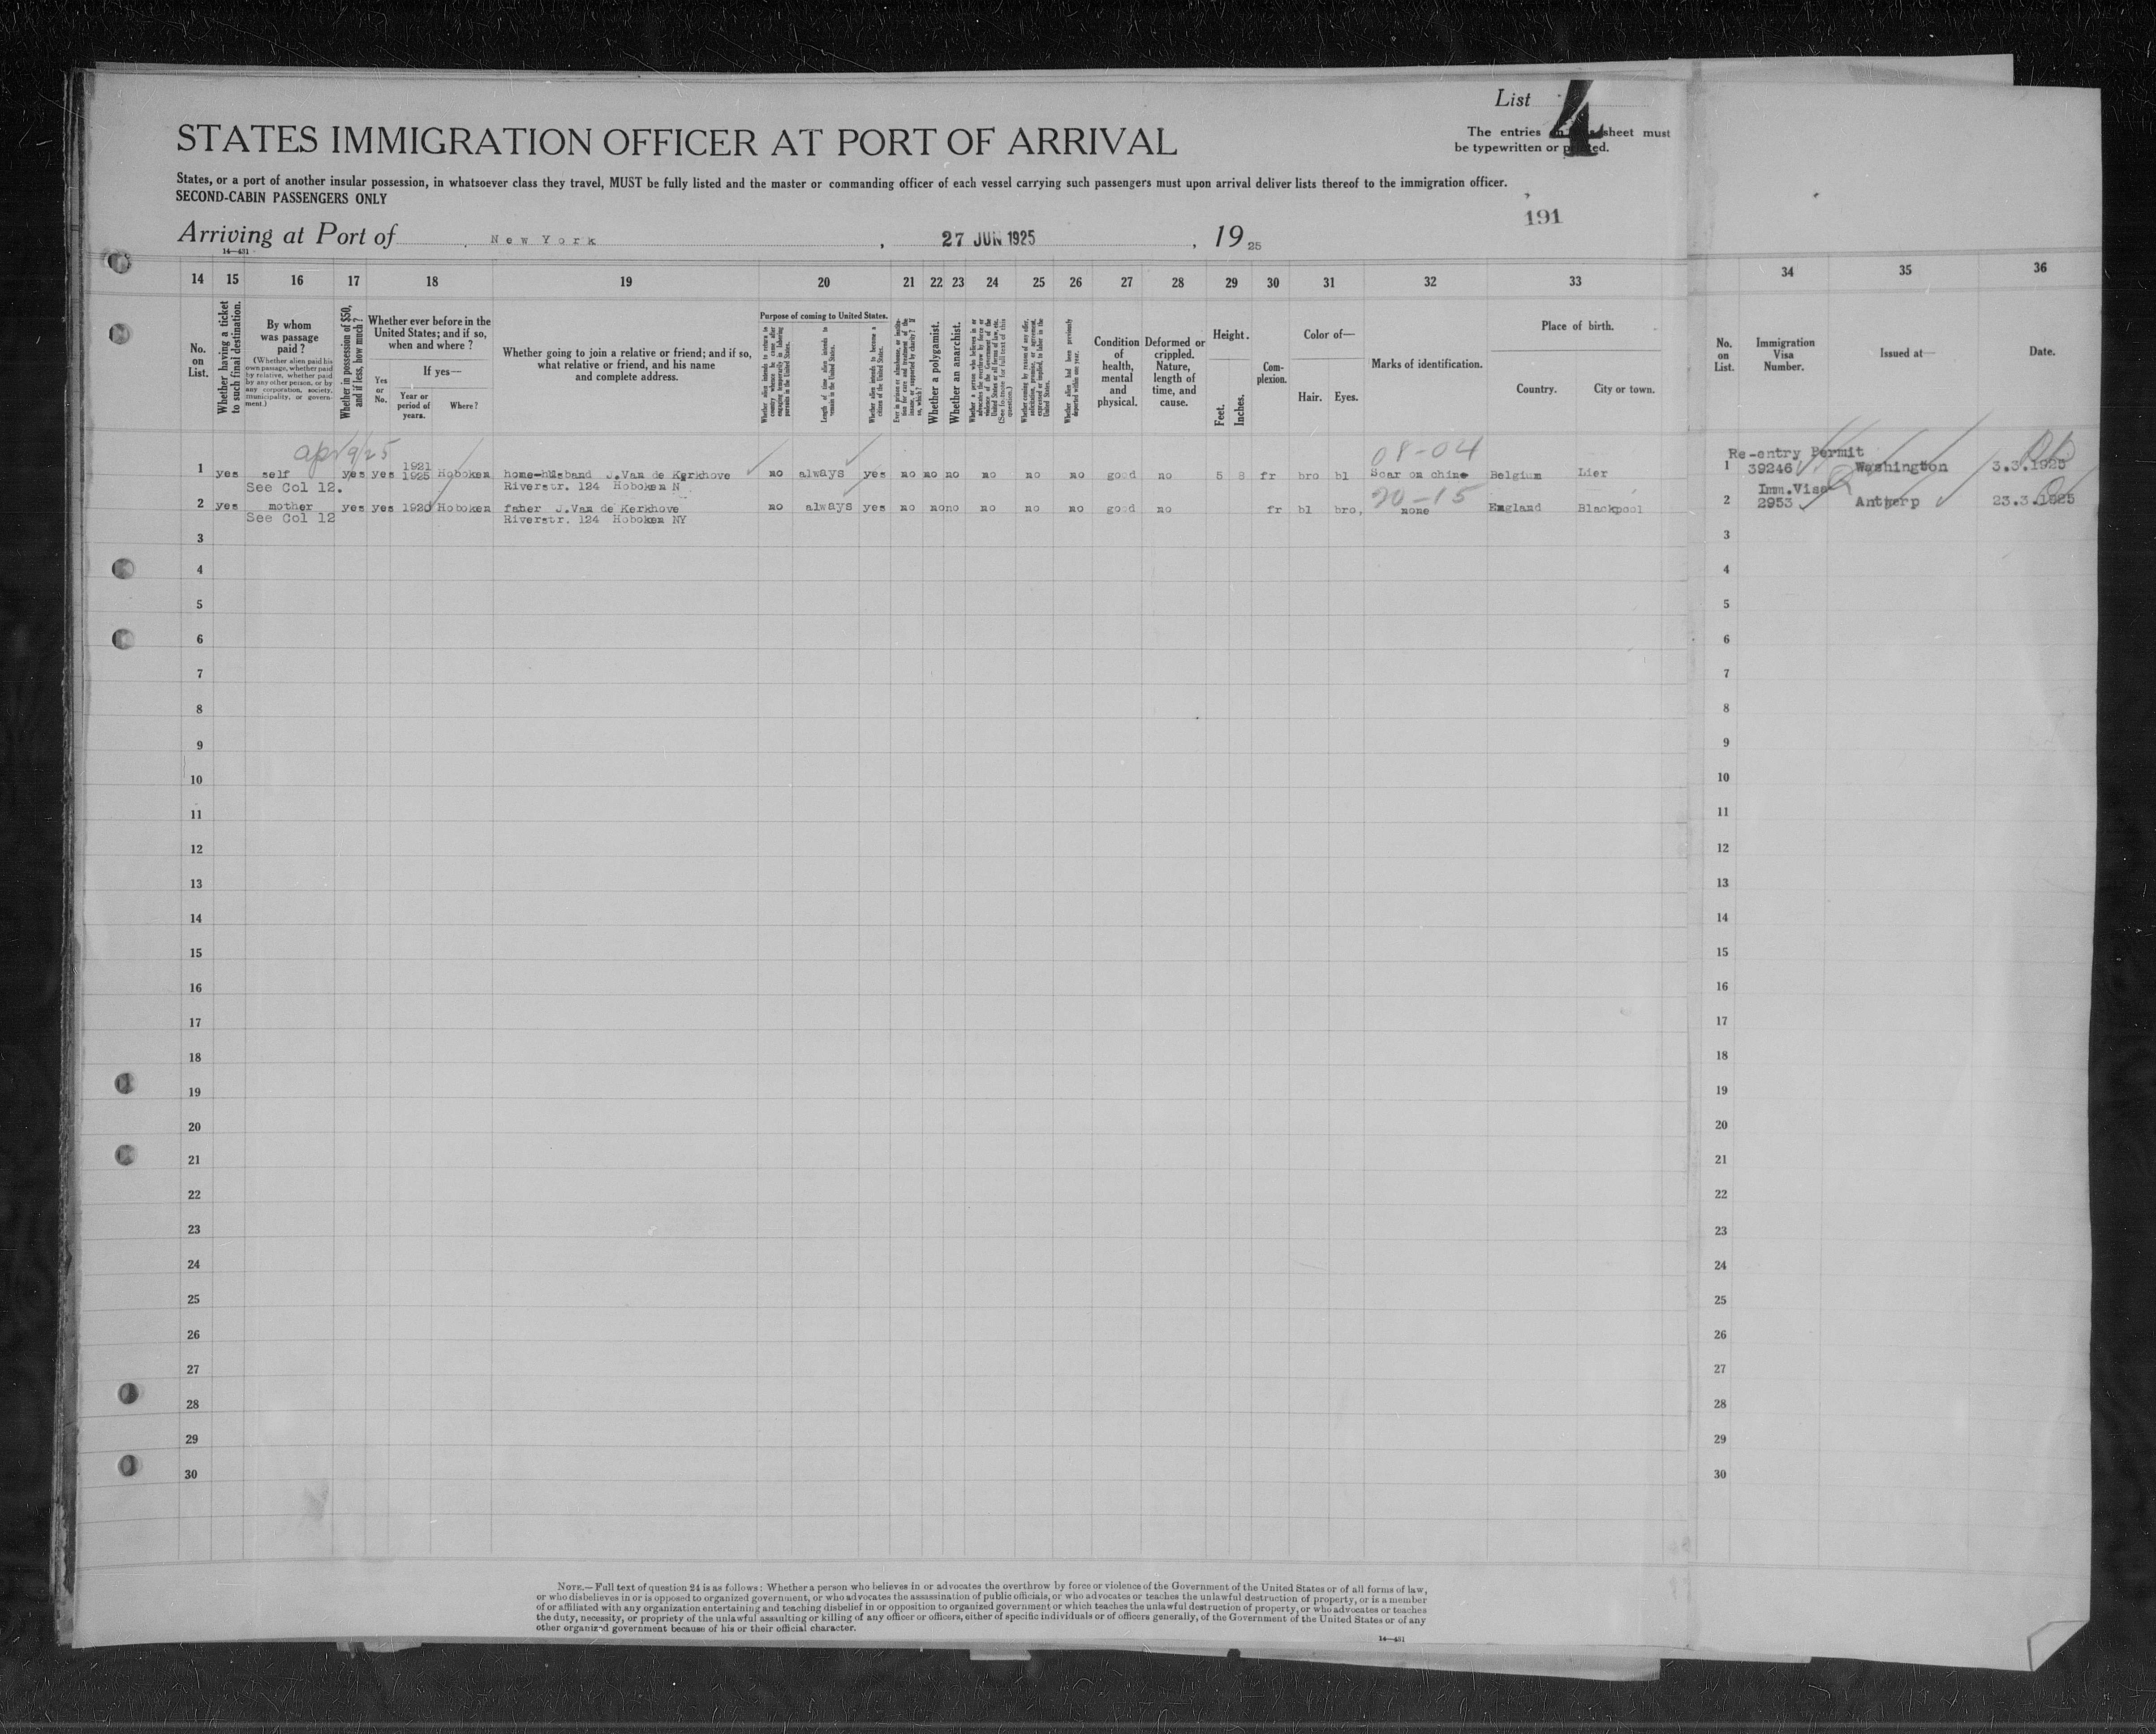 List 4
STATES IMMIGRATION OFFICER AT PORT OF ARRIVAL
The entries sheet must
be typewritten or
States, or a port of another insular possession, in whatsoever class they travel, MUST be fully listed and the master or commanding officer of each vessel carrying such passengers must upon arrival deliver lists thereof to the immigration officer.
SECOND-CABIN PASSENGERS ONLY
191
Arriving at Port of New York, 27 JUN 1925, 19 25
14—431
14 15 16 17 18 19 20 21 22 23 24 25 26 27 28 29 30 31 32 33 34 35 36
No. on List.
Whether having a ticket to such final destination.
By whom was passage paid?
(Whether alien paid his own passage, whether paid by relative, whether paid by any other person, or by any corporation, society, municipality, or government.)
Whether in possession of $50, and if less, how much?
Whether ever before in the United States; and if so, when and where?
Yes or No.
If yes—
Year or period of years.
Where?
Whether going to join a relative or friend; and if so, what relative or friend, and his name and complete address.
Purpose of coming to United States.
Whether alien intends to return to country whence he came after engaging temporarily in laboring pursuits in the United States.
Length of time alien intends to remain in the United States.
Whether alien intends to become a citizen of the United States.
Whether a polygamist.
Whether an anarchist.
Whether alien had been previously deported within one year.
Condition of health, mental and physical.
Deformed or crippled. Nature, length of time, and cause.
Height.
Feet. Inches.
Complexion.
Color of—
Hair. Eyes.
Marks of identification.
Place of birth.
Country. City or town.
No. on List.
Immigration Visa Number.
Issued at—
Date.
apr 9/25 08-04 Re-entry Permit
1 yes self yes yes 1921 1925 Hoboken home-husband J.Van de Kerkhove no always yes no no no no no no good no 5 8 fr bro bl Scar on chine Belgium Lier 1 39246 Washington 3.3.1925
See Col 12. Riverstr. 124 Hoboken N
20-15 Imm.Visa
2 yes mother yes yes 1920 Hoboken faher J.Van de Kerkhove no always yes no no no no no no good no fr bl bro, none England Blackpool 2 2953 Antwerp 23.3.1925
See Col 12 Riverstr. 124 Hoboken NY
3 3
4 4
5 5
6 6
7 7
8 8
9 9
10 10
11 11
12 12
13 13
14 14
15 15
16 16
17 17
18 18
19 19
20 20
21 21
22 22
23 23
24 24
25 25
26 26
27 27
28 28
29 29
30 30
NOTE.—Full text of question 24 is as follows: Whether a person who believes in or advocates the overthrow by force or violence of the Government of the United States or of all forms of law,
or who disbelieves in or is opposed to organized government, or who advocates the assassination of public officials, or who advocates or teaches the unlawful destruction of property, or is a member
of or affiliated with any organization entertaining and teaching disbelief in or opposition to organized government or which teaches the unlawful destruction of property, or who advocates or teaches
the duty, necessity, or propriety of the unlawful assaulting or killing of any officer or officers, either of specific individuals or of officers generally, of the Government of the United States or of any
other organized government because of his or their official character.
14—431